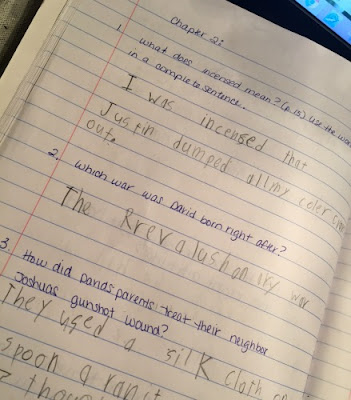 Chapter 2:
1. What does incensed mean? (p. 15) Use the word
in a complete sentence.
I was incensed that
Justin dumped all my coler
out.
2. Which war was David born right after?
The Rrevalushonary war
3. How did Davids parents treat their neighbor
Joshuas gunshot wound?
They used a silk cloth
spoon a